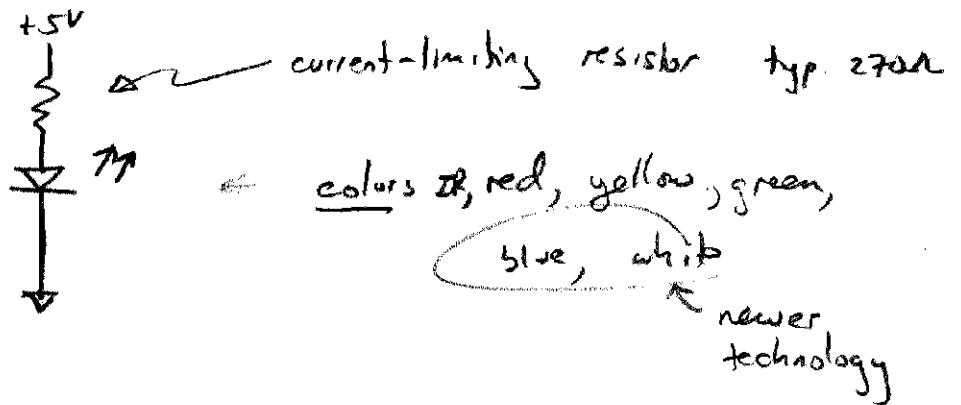 +5V
current-limiting resistor typ. 270Ω
colors IR, red, yellow, green,
blue, white
newer
technology